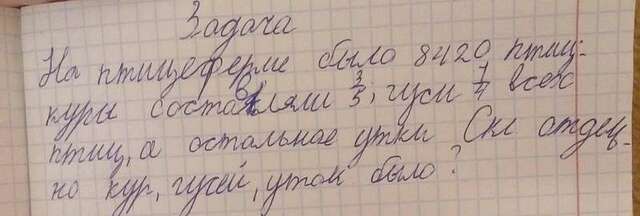 Задача
На птицеферме было 8420 птиц.
куры составляли 3/5, гуси 1/4 всех
птиц, а остальное утки Ск отдель
но кур, гусей, уток было?